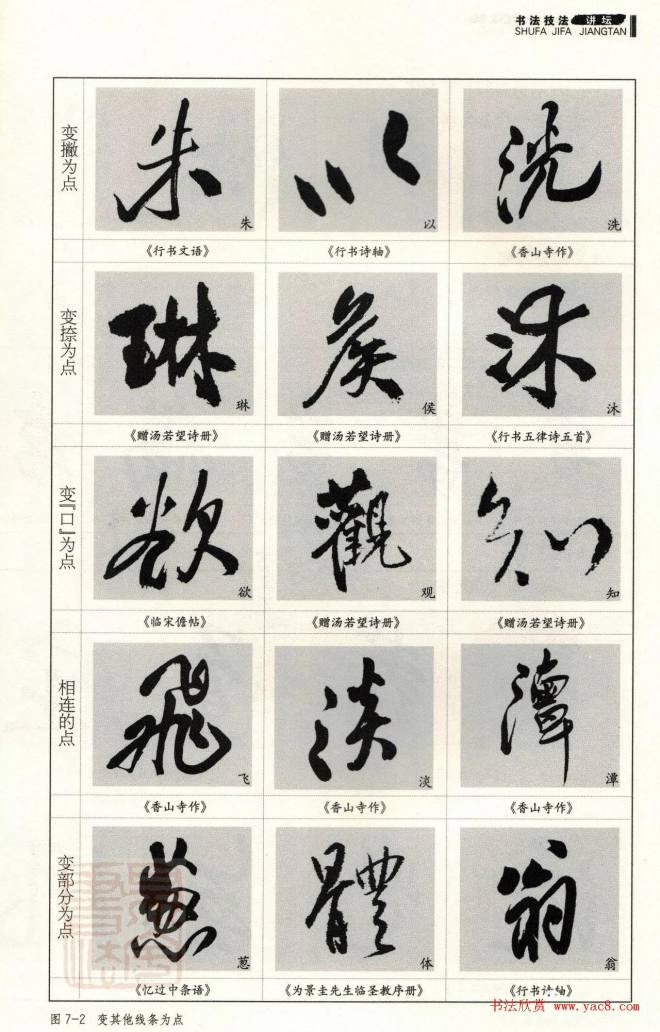 书法技法 讲坛
SHUFA JIFA JIANGTAN
变撇为点
朱 以 洗
《行书文语》 《行书诗轴》 《香山寺作》
变捺为点
琳 侯 沐
《赠汤若望诗册》 《赠汤若望诗册》 《行书五律诗五首》
变“口”为点
欲 观 知
《临宋儋帖》 《赠汤若望诗册》 《赠汤若望诗册》
相连的点
飞 淡 潭
《香山寺作》 《香山寺作》 《香山寺作》
变部分为点
葱 体 翁
《忆过中条语》 《为景圭先生临圣教序册》 《行书诗轴》
图7-2 变其他线条为点
书法欣赏 www.yac8.com